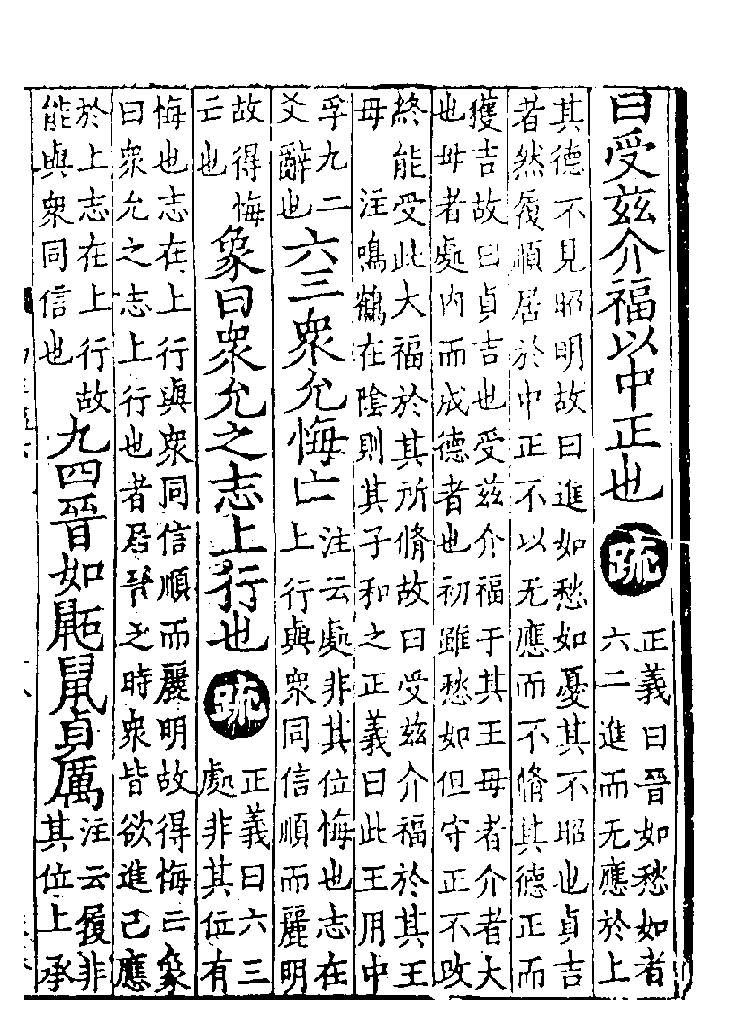 曰受兹介福以中正也疏正義曰晉如愁如者
六二進而无應於上
其德不見昭明故曰進如愁如憂其不昭也貞吉
者然履順居於中正不以无應而不脩其德正而
獲吉故曰貞吉也受兹介福于其王母者介者大
也母者處内而成德者也初雖愁如但守正不改
終能受此大福於其所脩故曰受兹介福於其王
母　注鳴鶴在陰則其子和之正義曰此王用中
孚九二
爻辭也六三衆允悔亡注云處非其位悔也志在
上行與衆同信順而麗明
故得悔
亡也象曰衆允之志上行也疏正義曰六三
處非其位有
悔也志在上行與衆同信順而麗明故得悔亡象
曰衆允之志上行也者居晉之時衆皆欲進己應
於上志在上行故
能與衆同信也九四晉如鼫鼠貞厲注云履非
其位上承